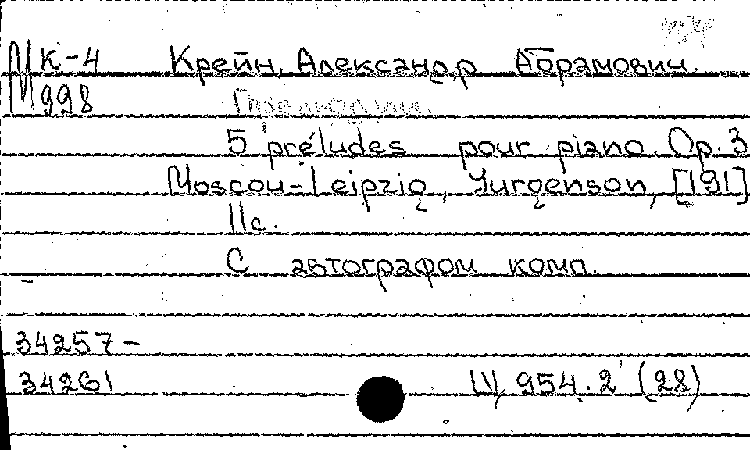 МК-4 Крейн, Александр Абрамович.
М998
5 préludes pour piano. Op. 3
Moscou-Leipzig, Jurgenson, [191]
11с.
С автографом комп.
34257-
34261 954.2 (28)